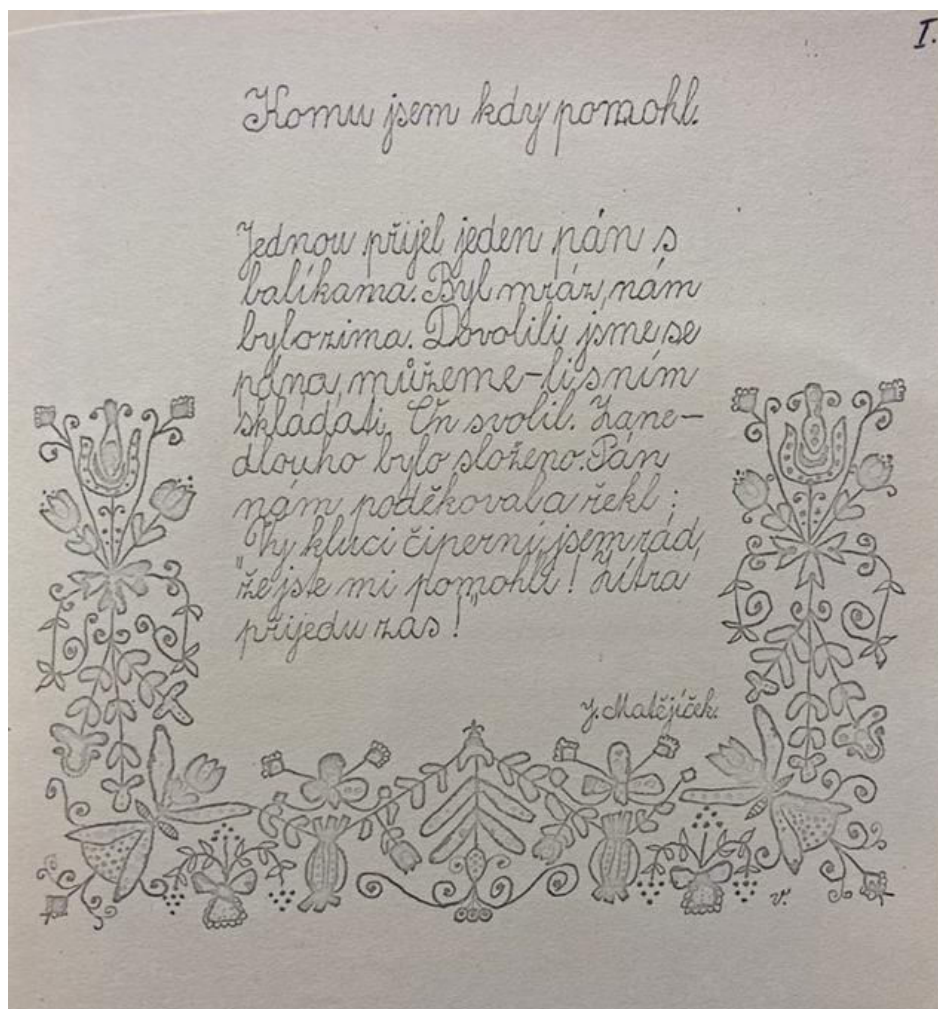 I.
Komu jsem kdy pomohl.
Jednou přijel jeden pán s
balíkama. Byl mráz, nám
bylo zima. Dovolili jsme se
pána, můžeme-li s ním
skládati. On svolil. Zane-
dlouho bylo složeno. Pán
nám poděkoval a řekl :
"Vy kluci čiperní, jsem rád,
že jste mi pomohli! Zítra
přijedu zas!"
J. Matějíček.
V.